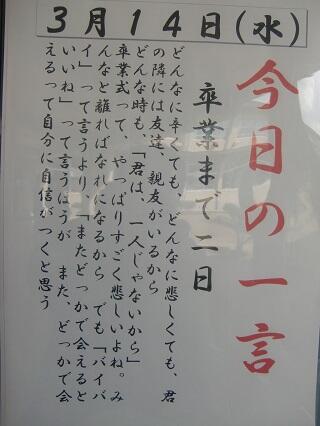 3月14日(水)
今日の一言
卒業まで二日
どんなに辛くても、どんなに悲しくても、君
の隣には友達、親友がいるから
どんな時も、「君は、一人じゃないから」
卒業式って、やっぱりすごく悲しいよね。み
んなと離ればなれになるから でも「バイバ
イ」って言うより、「またどっかで会えると
いいね」って言うほうが また、どっかで会
えるって自分に自信がつくと思う